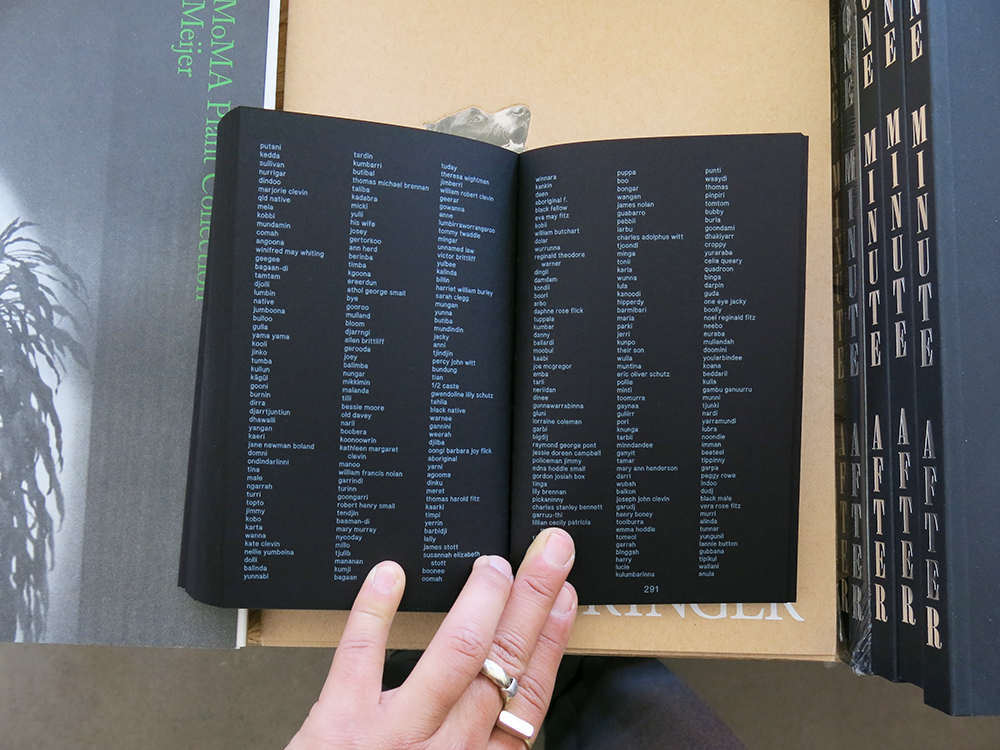 MoMA Plant Collection
Meijer
putani
kedda
sullivan
nurrigar
dindoo
marjorie clevin
qld native
mela
kobbi
mundamin
comah
angoona
winifred may whiting
geegee
bagaan-di
tamtam
djolli
lumbin
native
jumboona
bulloo
gulla
yama yama
kooli
jinko
tumba
kullun
kāgūl
gooni
burnin
dirra
djarrtjuntiun
dhawalli
yangan
kaeri
jane newman boland
domni
ondindarlinni
tina
male
ngarrah
turri
topto
jimmy
kobo
karta
wanna
kate clevin
nellie yumbeina
dolli
balinda
yunnabi
tardin
kumbarri
butibal
thomas michael brennan
taliba
kadabra
micki
yulli
his wife
josey
gertorkoo
ann herd
berinba
timba
kgoona
ereerdun
athol george small
bye
gooroo
mulland
bloom
djarrngi
allen brittliff
gerooda
joey
balimba
nungar
mikkimin
malanda
tilli
bessie moore
old davey
narli
boobera
koonoowrin
kathleen margaret
clevin
manoo
william francis nolan
garrindi
turinn
goongarri
robert henry small
tendjin
baaman-di
mary murray
nyooday
millo
tjulib
mananan
kumji
bagaan
tuday
theresa wightman
jimberri
william robert clevin
geerar
gowanna
anne
lumbirraworrangaroo
tommy twaddle
mingar
unnamed law
victor brittliff
yulbee
kalinda
billin
harriet william burley
sarah clegg
mungan
yunna
butiba
mundindin
jacky
anni
tjindjin
percy john witt
bundung
tian
1/2 caste
gwendoline lilly schutz
tahlia
black native
warnee
gannini
weerah
djilba
oongi barbara joy flick
aboriginal
yarni
agooma
dinku
meret
thomas harold fitz
kaarki
timpi
yerrin
barbidji
lally
james stott
susannah elizabeth
stott
boonee
oomah
winnara
kankin
deen
aboriginal f.
black fellow
eva may fitz
kobli
william butchart
dolar
wurrunna
reginald theodore
warner
dingii
damdam
kondii
boorl
arbo
daphne rose flick
tuppala
kumbar
danny
ballardi
moobul
kaabi
joe mcgregor
emba
tarli
neriidan
dinee
gunnawarrabinna
gluni
lorraine coleman
garbi
bigdij
raymond george pont
jessie doreen campbell
policeman jimmy
edna hoddle small
gordon josiah box
tinga
lily brennan
pickaninny
charles stanley bennett
garruu-thi
lillian cecily patricia
puppa
boo
bongar
wangan
james nolan
guabarro
pebbil
iarbu
charles adolphus witt
tjoondi
minga
tonii
karla
wunna
lula
kanoodi
hipperdy
barmibari
maria
parki
jerri
kunpo
their son
wulla
muntina
eric oliver schutz
pollie
mintl
toomurra
gaynaa
guliirr
pori
knunga
tarbil
minndandee
ganyit
tamar
mary ann henderson
darri
wubah
balkon
joseph john clevin
garudj
henry boney
toolburra
emma hoddle
tomeol
garrah
binggah
harry
lucie
kulumbarinna
punti
waaydi
thomas
pinpiri
tomtom
bubby
burla
goondami
dhakiyarr
croppy
yuraraba
celia queary
quadroon
binga
darpin
guda
one eye jacky
boolly
noel reginald fitz
neebo
euraba
mullandah
doomini
yoularbindee
koana
beddaril
kulla
gambu ganuurru
munni
tjunki
nardi
yarramundi
lubra
noondie
imman
beeteel
tippinny
garpa
peggy rowe
indoo
dudj
black male
vera rose fitz
murri
alinda
tunnar
yungunil
lannie button
gubbana
tipikul
wallani
anula
291
RINGER
ONE MINUTE AFTER
ONE MINUTE AFTER
ONE MINUTE AFTER